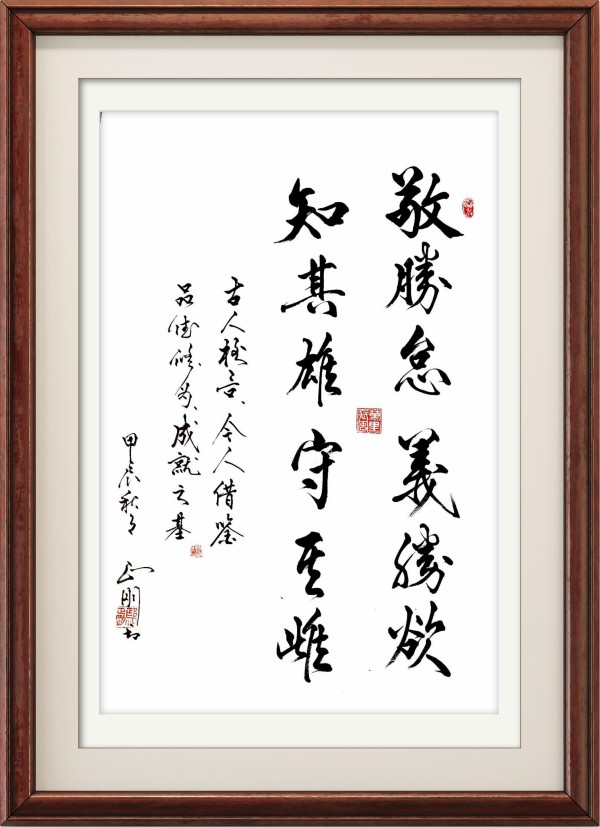 敬勝怠義勝欲
知其雄守其雌
古人格言、令人借鑒
品德修为、成就之基
甲辰秋月
正刚书